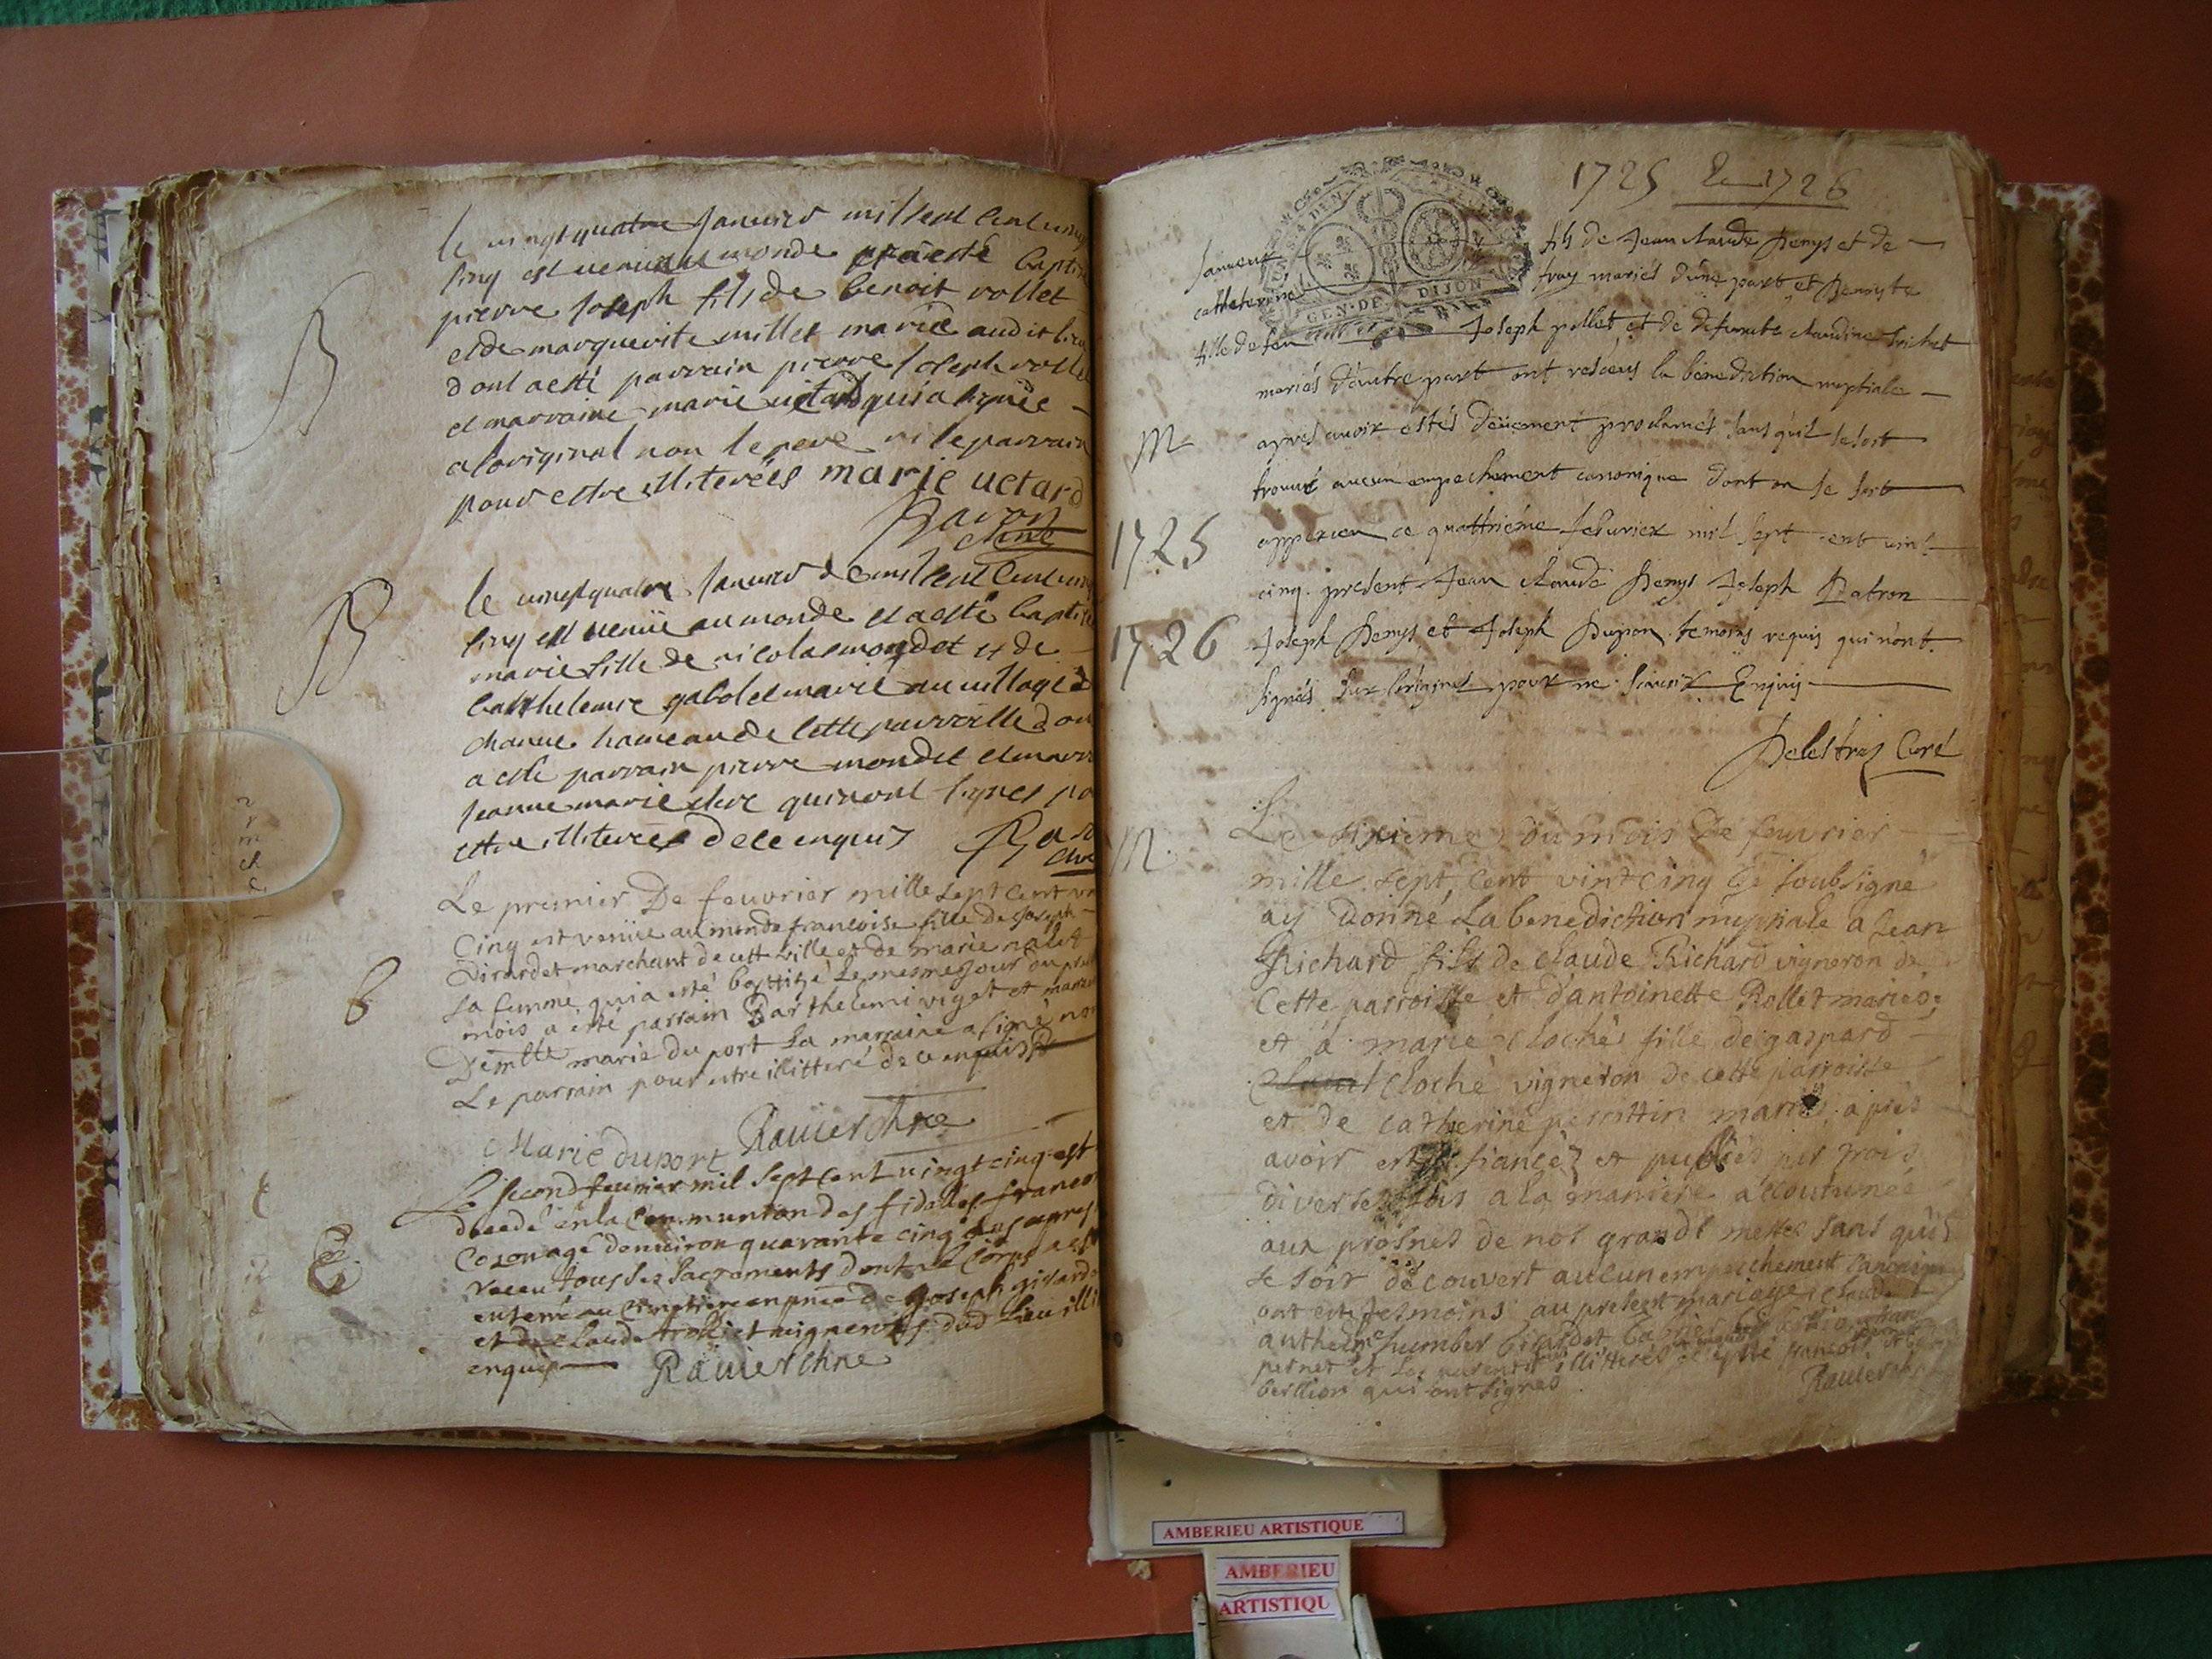 B
le vingt quatre Janvier mil sept cent ving
cinq est venu au monde et a esté baptis
pierre Joseph fils de benoit rollet
et de marguerite millet marié audit lieu
dont a esté parrain pierre Joseph rolle
et marraine marie uctard qui a signée
a loriginal non le pere ni le parrain
pour estre illiterées marie uctard
B
le vingt quatre Janvier mil sept cent ving
cinq est venüe au monde et a esté baptisé
marie fille de nicolas mondet et de
mariée au village de
hameau de cette parroisse don
a esté parrain pierre mondet et marr
Jeanne marie qui nont signes po
estre illiterées de ce enquis
B
Le premier De feuvrier mille sept cent vin
Cinq est venüe au monde francoise fille de Joseph
Dirardet marchant de cett ville et de marie
sa femme qui a esté baptizé le mesme Jour du
mois a esté parrain Barthelemi viget et marrai
Demlle marie du port La marraine a signé non
Le parrain pour estre illitteré de ce enquis
Marie duport Ravier
Le second feurier mil sept cent vingt cinq est
decedé en la Communion des fidelles francoi
agé denviron quarante cinq ans apres
receu tous les sacremenťs dont le Corps a est
enterré au cimetiere en pnce de Joseph
et de claude vignerons dud Lieu illi
enquis Ravier
1725 & 1726
GEN. DE DIJON
fils de Jean claude Demys et de
fray mariés d'une part et
catheterine
fille de feu Joseph pollet et de defuncte claudine
mariés d'autre part ont resceus la bénédiction nuptiale
M
apres avoir estés deüement proclamés sans qu'il se soit
trouvé aucun empechement canonique dont on se soit
1725
apperceu ce quattriéme febvrier mil sept cent vint
cinq. présent Jean claude Demys Joseph Patron
1726
Joseph Demys et Joseph Dupon temoins requis qui n'ont
signés sur l'original pour ne scavoir Enquis
Delestraz Curé
M
Le sixieme du mois De feuvrier
mille sept cent vint cinq Je soubsigné
ay donné La benediction nuptiale a Jean
Richard fils de claude Richard vigneron de
Cette parroisse et d'antoinette Rollet mariés
et á marie cloche fille de gaspard
cloche vigneron de cette parroisse
et de catherine mariés apres
avoir estes fiancez et publiés par trois
diverses fois a la maniere accoutumée
aux prosnes de nos grandes messes sans quil
se soit découvert aucun empechement canonique
ont esté tesmoins au present mariage claude
anthelme humber
pernet et les parents illitteres
qui ont signes Ravier
AMBERIEU ARTISTIQUE
AMBERIEU
ARTISTIQU